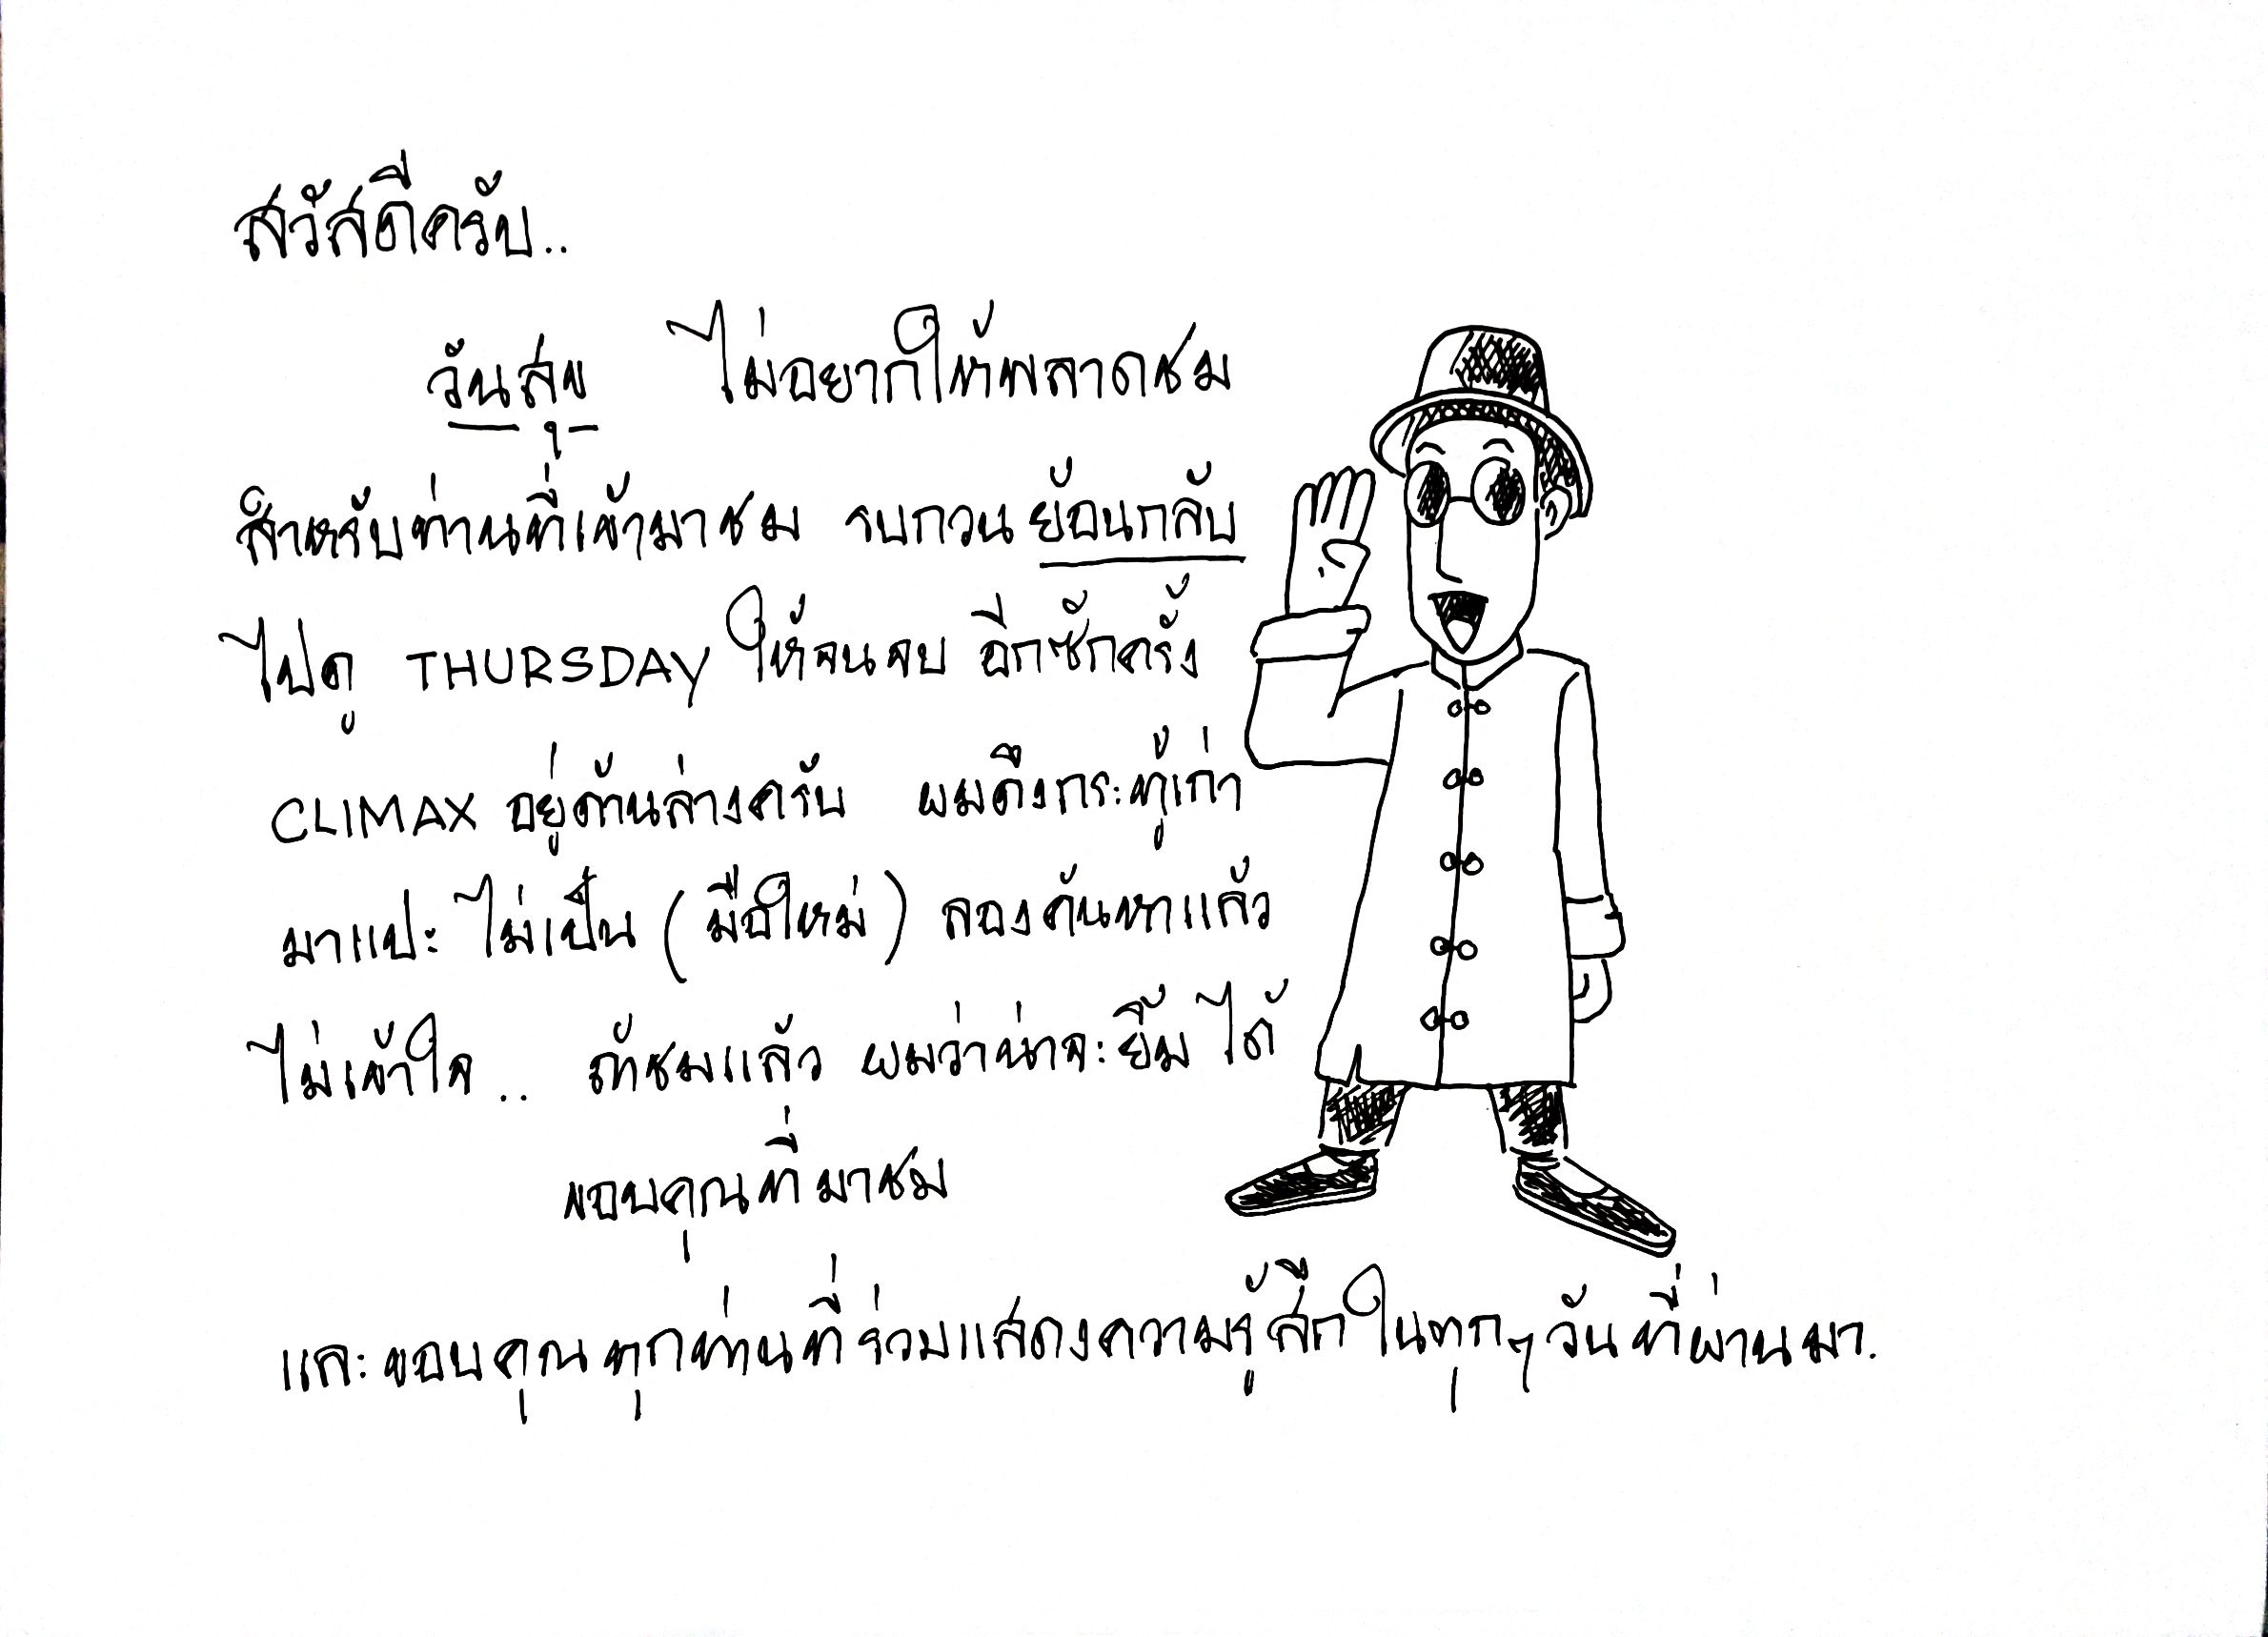 สวัสดีครับ..
วันสุข ไม่อยากให้พลาดชม
สำหรับท่านที่เข้ามาชม รบกวนย้อนกลับ
ไปดู THURSDAY ให้จนจบ อีกซักครั้ง
CLIMAX อยู่ด้านล่างครับ ผมดึงกระทู้เก่า
มาแปะ ไม่เป็น (มือใหม่) ลองค้นหาแล้ว
ไม่เข้าใจ.. ถ้าชมแล้ว ผมว่าน่าจะยิ้มได้
ขอบคุณที่มาชม
และขอบคุณทุกท่านที่ร่วมแสดงความรู้สึกในทุกๆวันที่ผ่านมา.